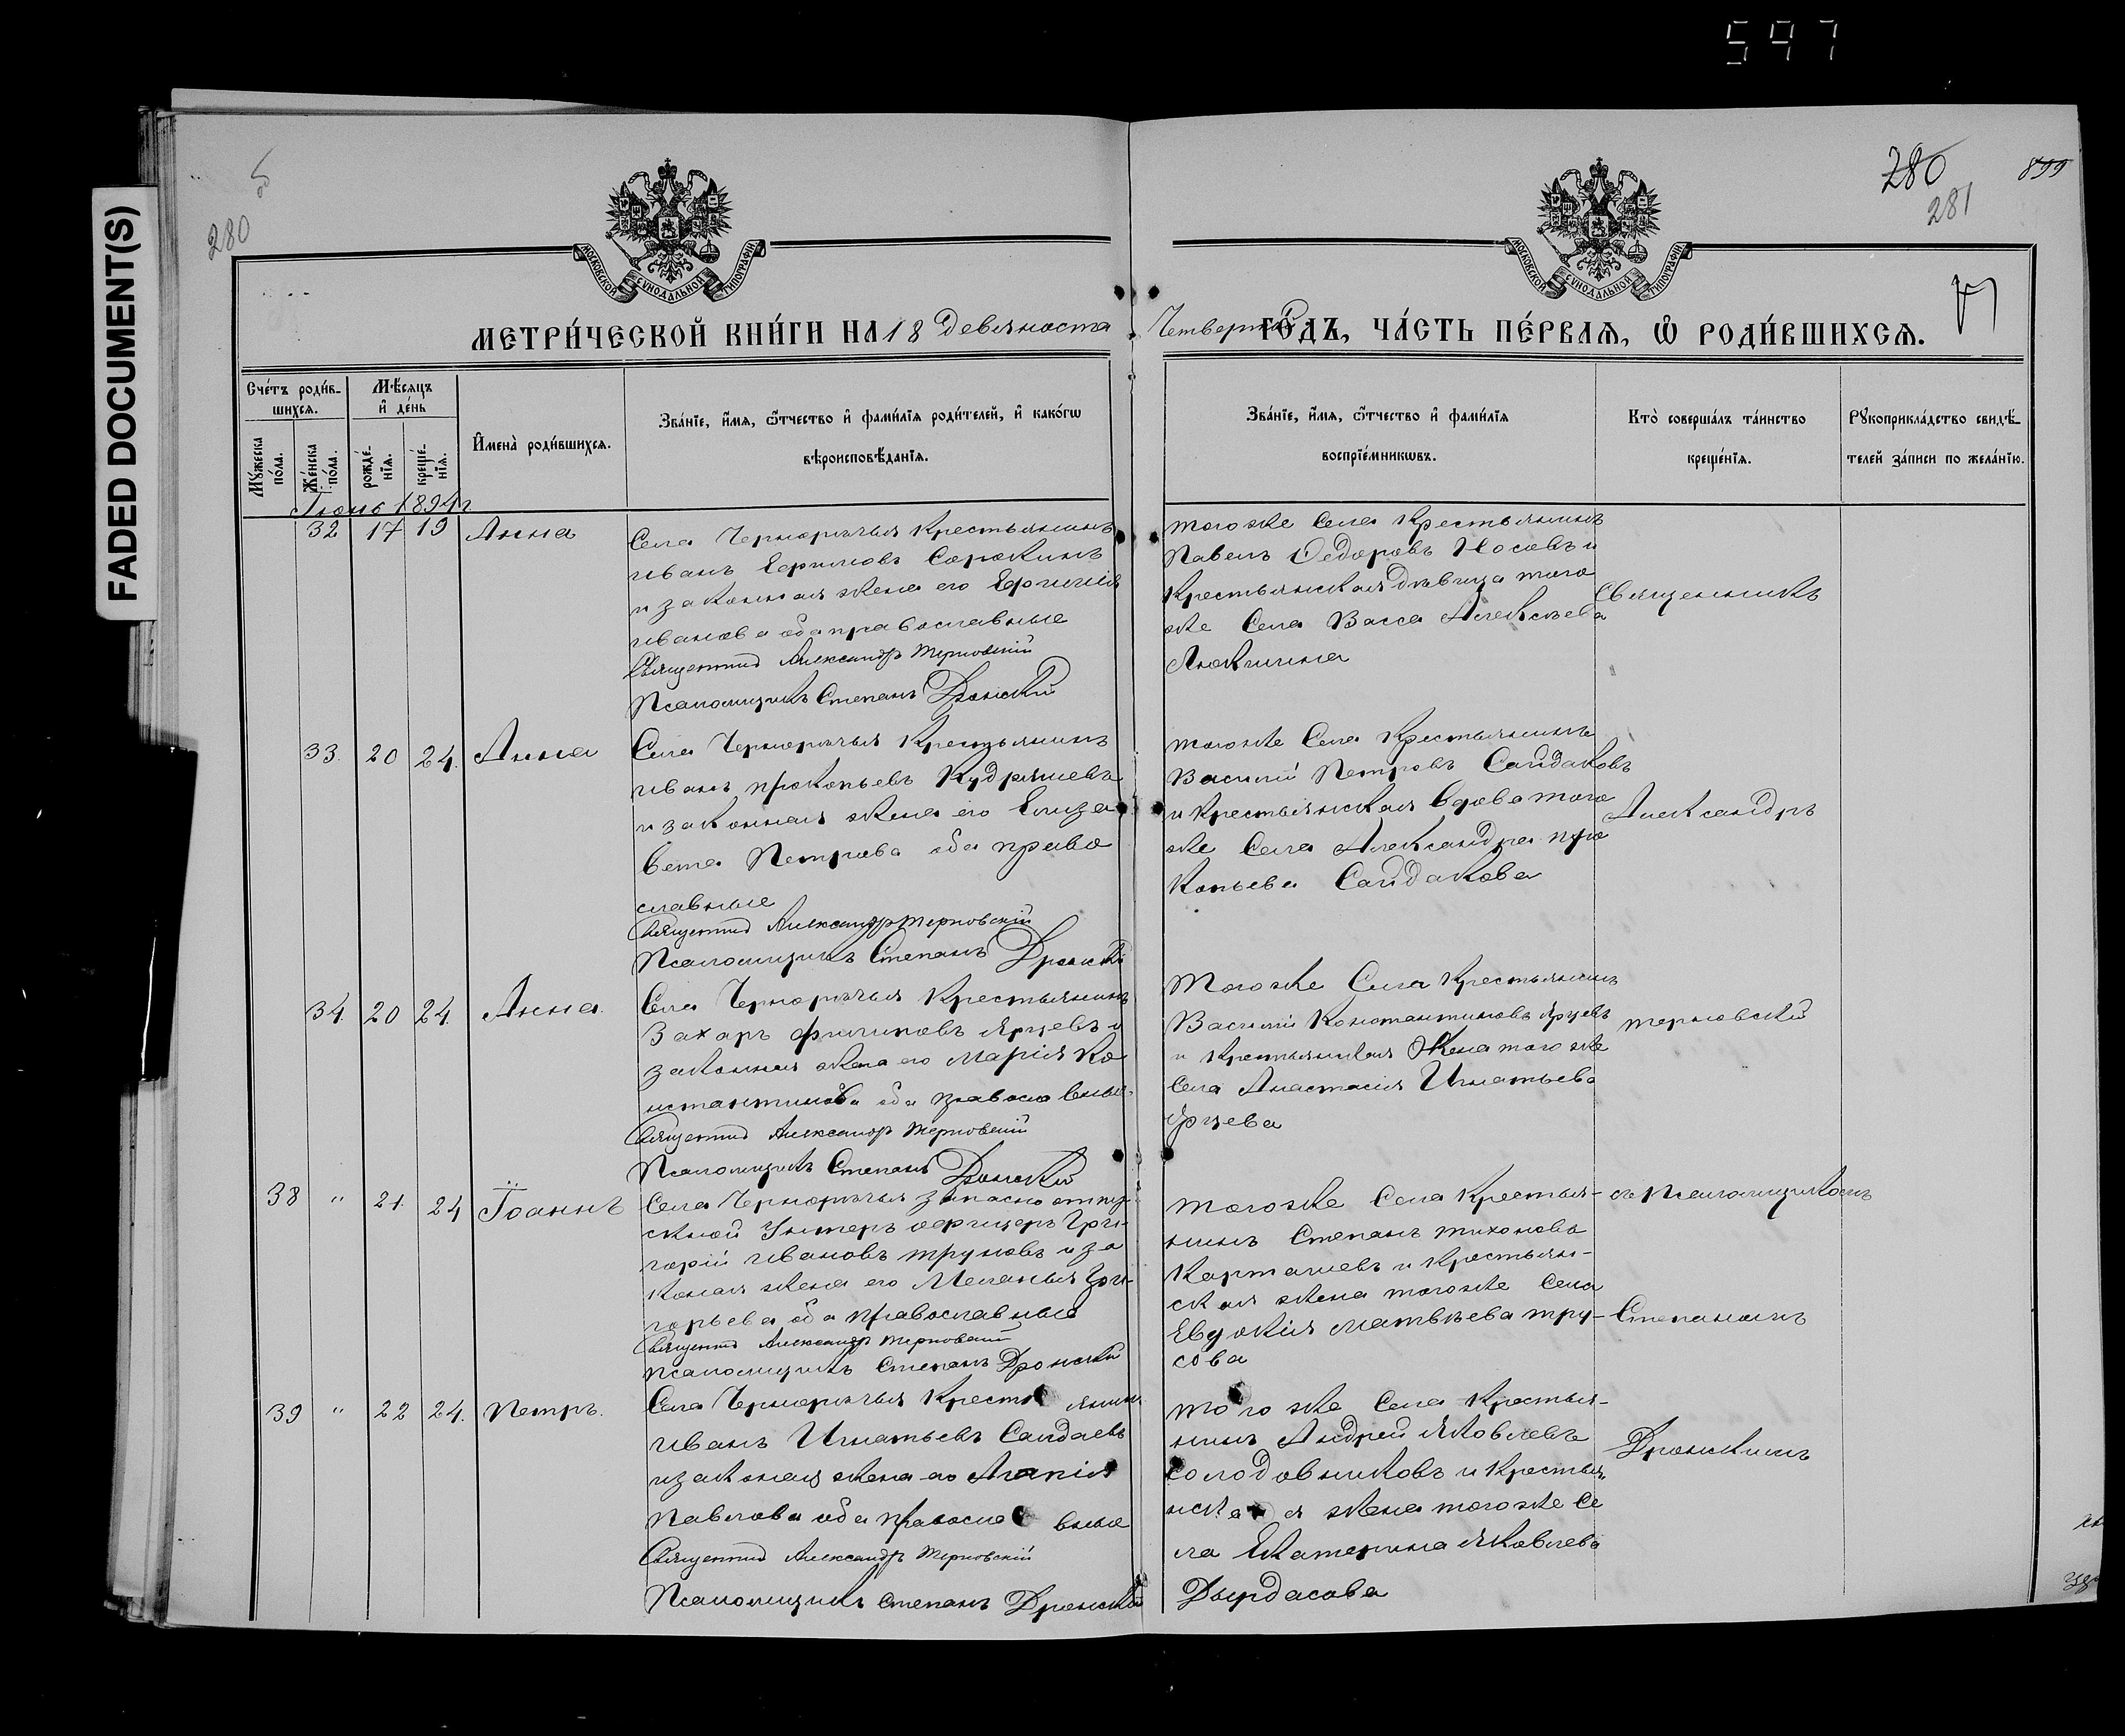 597
FADED DOCUMENT(S)
5
об
280
280
281
899
МОСКОВСКОЙ СѴНОДАЛЬНОЙ ТИПОГРАФІИ
МОСКОВСКОЙ СѴНОДАЛЬНОЙ ТИПОГРАФІИ
МЕТРИ́ЧЕСКОЙ КНИ́ГИ НА 18 девяноста Четвертый ГО́ДЪ, ЧА́СТЬ ПЕ́РВАЯ, Ѿ РОДИ́ВШИХСЯ.
Сче́тъ роди́в-
шихся.
Мѣ́сяцъ
и҆ де́нь
Мꙋ́жеска по́ла.
Же́нска по́ла.
рожде́-нїя.
креще́-нїя.
И҆мена̀ роди́вшихся.
Зва́нїе, и҆́мя, ѻ҆́тчество и҆ фами́лїя роди́телей, и҆ како́гѡ
вѣроисповѣ́данїя.
Зва́нїе, и҆́мя, ѻ҆́тчество и҆ фами́лїя
воспрїе́мникѡвъ.
Кто̀ соверша́лъ та́инство
креще́нїя.
Рꙋкоприкла́дство свидѣ́-
телей за́писи по жела́нїю.
Іюнь 1894 г
32 17 19 Анна
Села Чернорѣчья крестьянинъ
иванъ Ефимовъ Сорокинъ
и законная жена его Ефимія
иванова оба православные
Священникъ Александръ Терновскій
Псаломщикъ Степанъ Дронскій
тогоже Села Крестьянинъ
Павелъ Ѳедоровъ Носовъ и
крестьянская дѣвица того
же Села Васса Алексѣева
Люкшина
Священникъ
33. 20 24. Анна
Села Чернорѣчья Крестьянинъ
иванъ прокопьевъ Кудряшевъ
и законная жена его Елиза
вета Петрова оба право
славные
Священникъ Александръ Терновскій
Псаломщикъ Степанъ Дронскій
тогоже Села Крестьянинъ
Василій Петровъ Сайдаковъ
и крестьянская вдова того
же Села Александра про
копьева Сайдакова
Александръ
34. 20 24. Анна.
Села Чернорѣчья Крестьянинъ
Захаръ филиповъ Ярцевъ и
законная жена его Марія Ко
нстантинова оба православные
Священникъ Александръ Терновскій
Псаломщикъ Степанъ Дронскій
Тогоже Села Крестьянинъ
Василій Константиновъ Ярцевъ
и крестьянская Жена того же
Села Анастасія Игнатьева
Ярцева
терновскій
38 " 21. 24 Іоаннъ
Села Чернорѣчья запасно отпу
скной Унтеръ офицеръ Гри-
горій ивановъ труновъ и за
коная жена его Меланья Гри-
горьева оба православные
Священникъ Александръ Терновскій
псаломщикъ Степанъ Дронскій
тогоже Села крестья-
нинъ Степанъ тихоновъ
Карташевъ и крестьян-
ская жена тогоже Села
Евдокія матвѣева тру-
сова
съ Псаломщикомъ
Степаномъ
39 " 22 24. Петръ.
Села Чернорѣчья Крестьянинъ
иванъ Игнатьевъ
и законая жена его Агапія
Павлова оба православные
Священникъ Александръ Терновскій
Псаломщикъ Степанъ Дронскій
того же Села Крестья-
нинъ Андрей Яковлевъ
солодовниковъ и крестья
нская жена тогоже Се
ла Екатерина Яковлева
Дырдасова
Дронскимъ